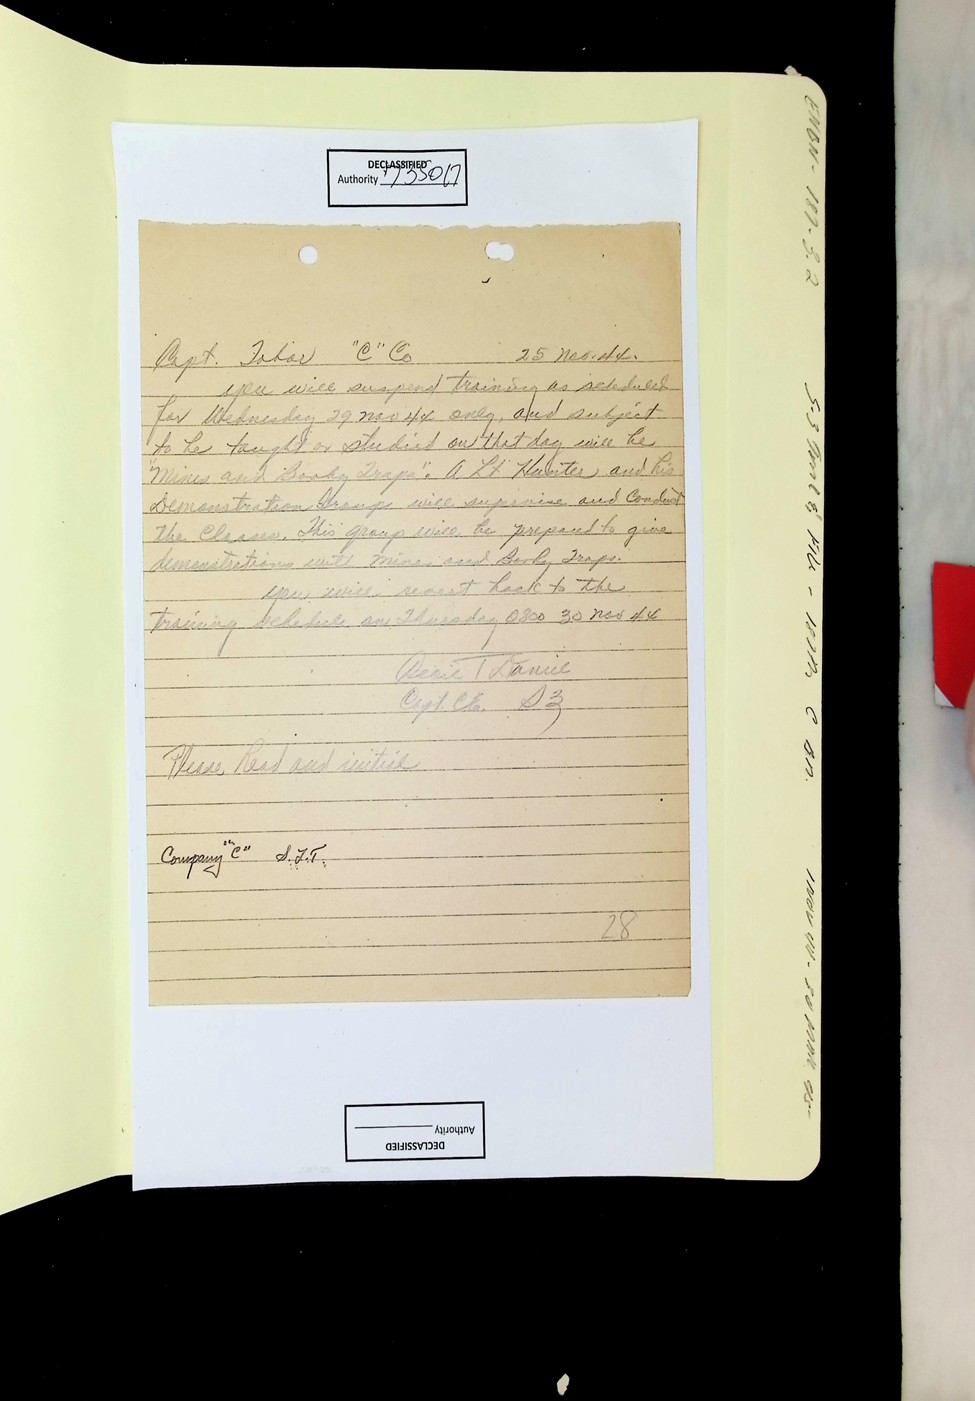 DECLASSIFIED
Authority 735017
Capt. Tobar "C" Co 25 Nov. 44.
you will suspend training as scheduled
for Wednesday 29 Nov 44 only, and subject
to be taught or studied on that day will be
"Mines and Booby Traps". A Lt Hunter and his
Demonstration Group will supervise and Conduct
the Classes. This group will be prepared to give
demonstrations with mines and Booby Traps.
you will revert back to the
training schedule on Thursday 0800 30 Nov 44
T Daniel
Capt. CE. S3
Please Read and initial
Company "C" S.J.T.
28
Authority
DECLASSIFIED
ENBN-187-3.2
S-3 File - 187th C Bn. 1 Nov 44 -